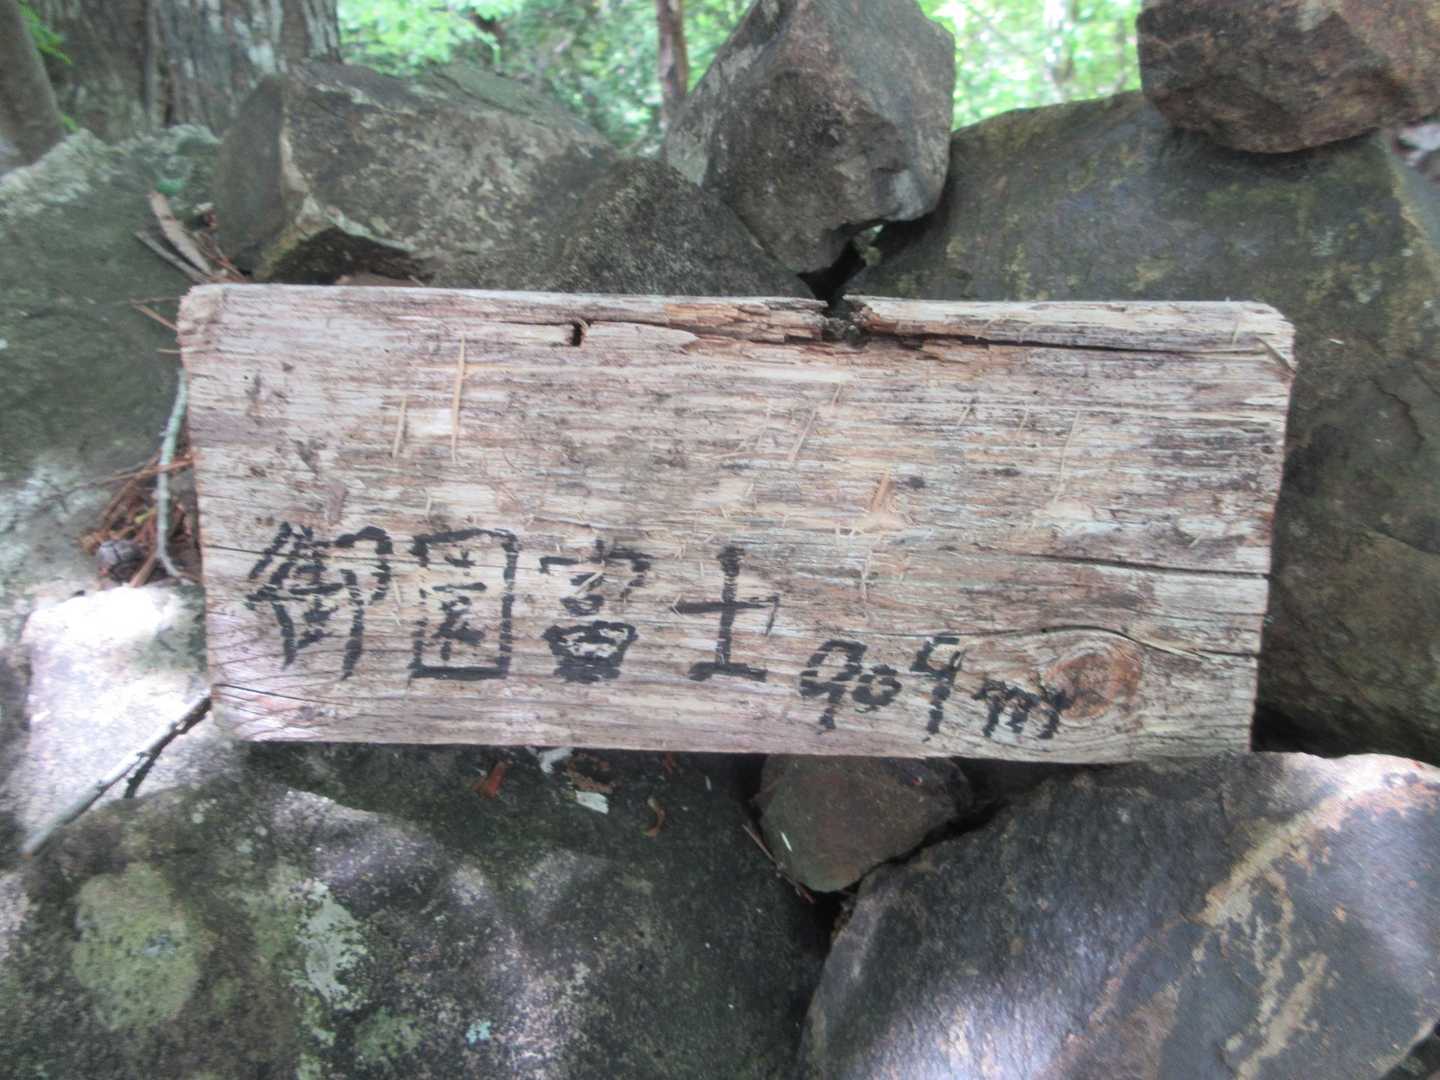 御園富士909m